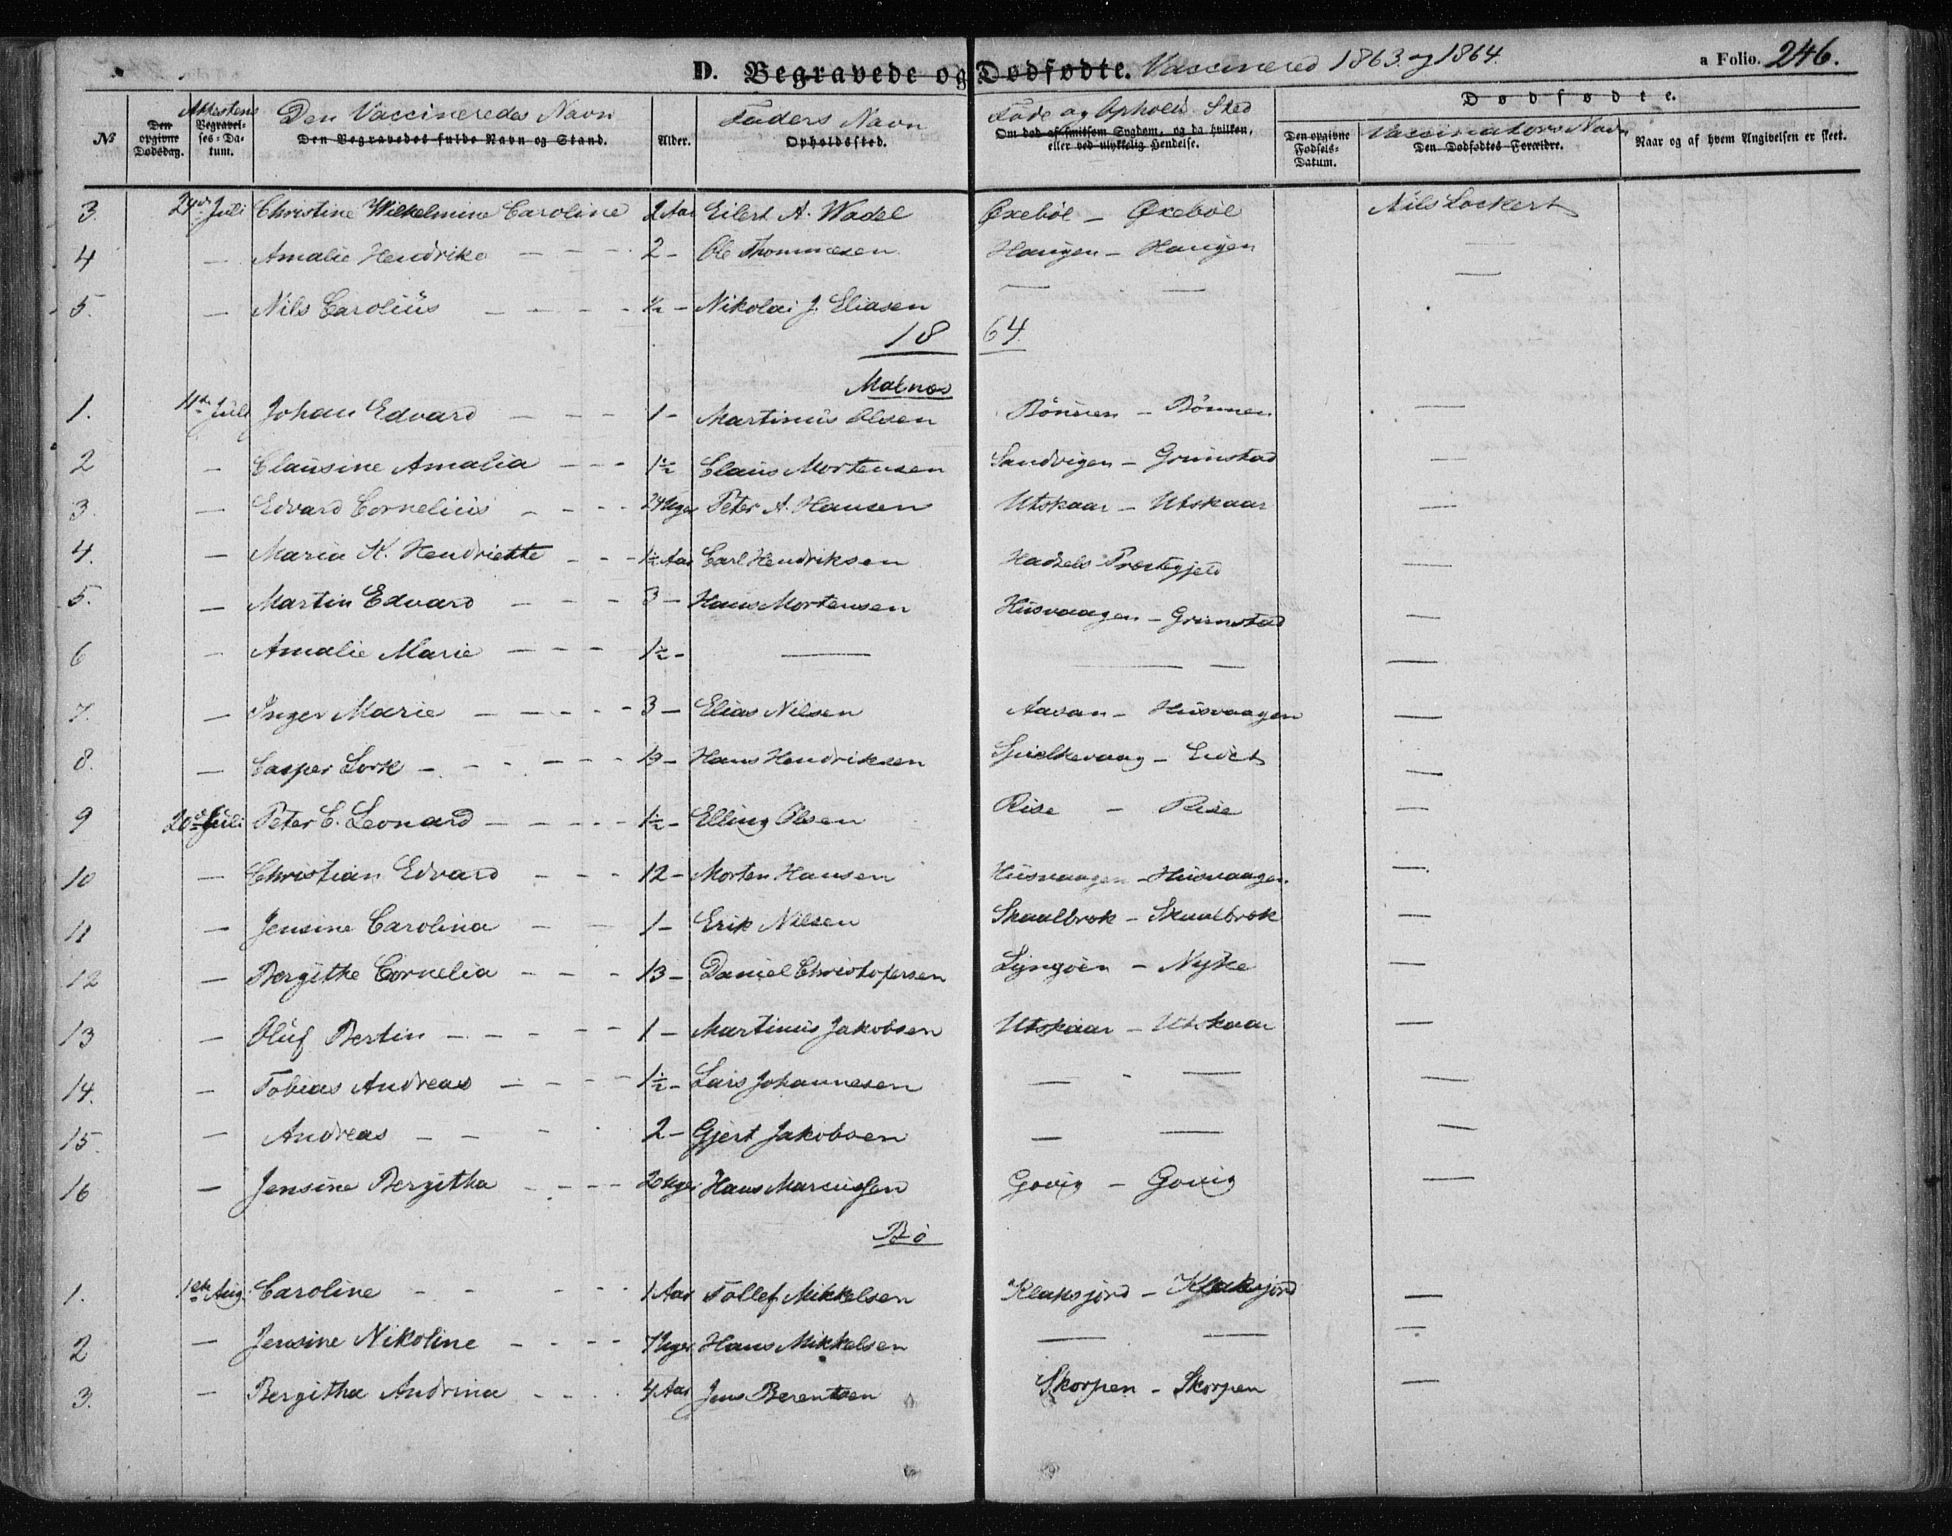 D. Begravede og Dødfødte. Vaccinered 1863 og 1864. a Folio. 246.
№ Den opgivne Dødsdag. Attestens Begravelses-Datum. Den Vaccineredes Navn Den Begravedes fulde Navn og Stand. Alder. Faders Navn Opholdssted. Føde og Ophold. Sted Om død af smitsom Sygdom, og da hvilken, eller ved ulykkelig Hendelse. Dødfødte. Den opgivne Fødsels-Datum. Vaccinatørs Navn Den Dødfødtes Forældre. Naar og af hvem Angivelsen er skeet.
3. 24de Juli Christine Wilhelmine Caroline 2 Aar Eilert A. Wadel Øxebøl — Øxebøl Nils Lockert
4 — Amalie Hendrike — — 2 — Ole Thommesen Haugen — Haugen —
5. — Nils Carolius — — — ½ — Nikolai J. Eliasen — — —
1864
Malnæs
1. 11te Juli Johan Edvard — — — 1 — Martinus Olsen Bönnen — Bönnen —
2 — Clausine Amalia — — — 1½ Claus Mortensen Sandvigen — Grimstad —
3. — Edvard Cornelius — — — 24 Uger Peter A. Hansen Utskaar — Utskaar —
4. — Maria K. Hendriette — — 1½ Aar Carl Hendriksen Hadsels Præstegjeld —
5. — Martin Edvard — — — 3 — Hans Mortensen Husvaagen — Grimstad —
6 — Amalie Marie — — — 1½ — — — — —
7. — Inger Marie — — — 3 — Elias Nilsen Aasan — Husvaagen —
8. — Casper Lork — — — 13 — Hans Hendriksen Spjelkevaag — Eidet —
9 20de Juli Peter C. Leonard — — — 1½ — Elling Olsen Rise — Rise —
10 — Christian Edvard — — — 12 — Morten Hansen Husvaagen — Husvaagen. —
11 — Jensine Carolina — — 1 — Erik Nilsen Skaalbrok — Skaalbrok —
12 — Bergithe Cornelia — — 13 — Daniel Christofersen Lyngöen — Nyke —
13 — Oluf Bertin — — — 1 — Martinus Jakobsen Utskaar — Utskaar —
14. — Tobias Andreas — — — 1½ — Lars Johannesen — — —
15. — Andreas — — — 2 — Gjert Jakobsen — — —
16 — Jensine Bergitha — — — 20 Uger Hans Marcussen Govig — Govig —
Bø
1. 1ste Aug. Caroline — — — 1 Aar Tollef Mikkelsen Klaksjord — Klaksjord —
2 — Jensine Nikoline — — — 7 Uger Hans Mikkelsen — — —
3. — Bergitha Andrina — — 4 Aar Jens Berentsen Skorpen — Skorpen —